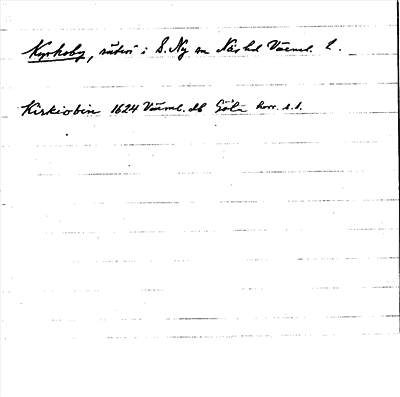 Kyrkoby, säteri i S. Ny sn Näs hd Värml. l.
Kirkiobin 1624 Värml. db Göta horr. s. 1.